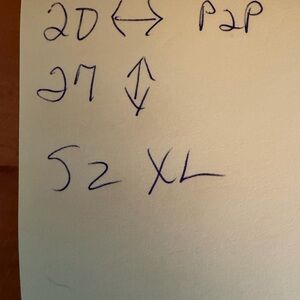 20 ↔ P2P
27 ↕
SZ XL